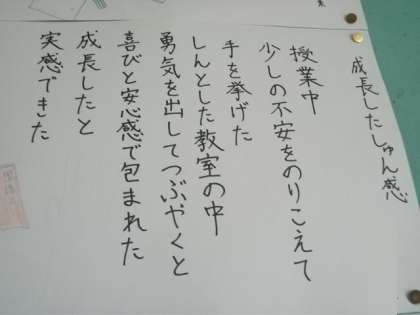 成長したしゅん感
授業中
少しの不安をのりこえて
手を挙げた
しんとした教室の中
勇気を出してつぶやくと
喜びと安心感で包まれた
成長したと
実感できた